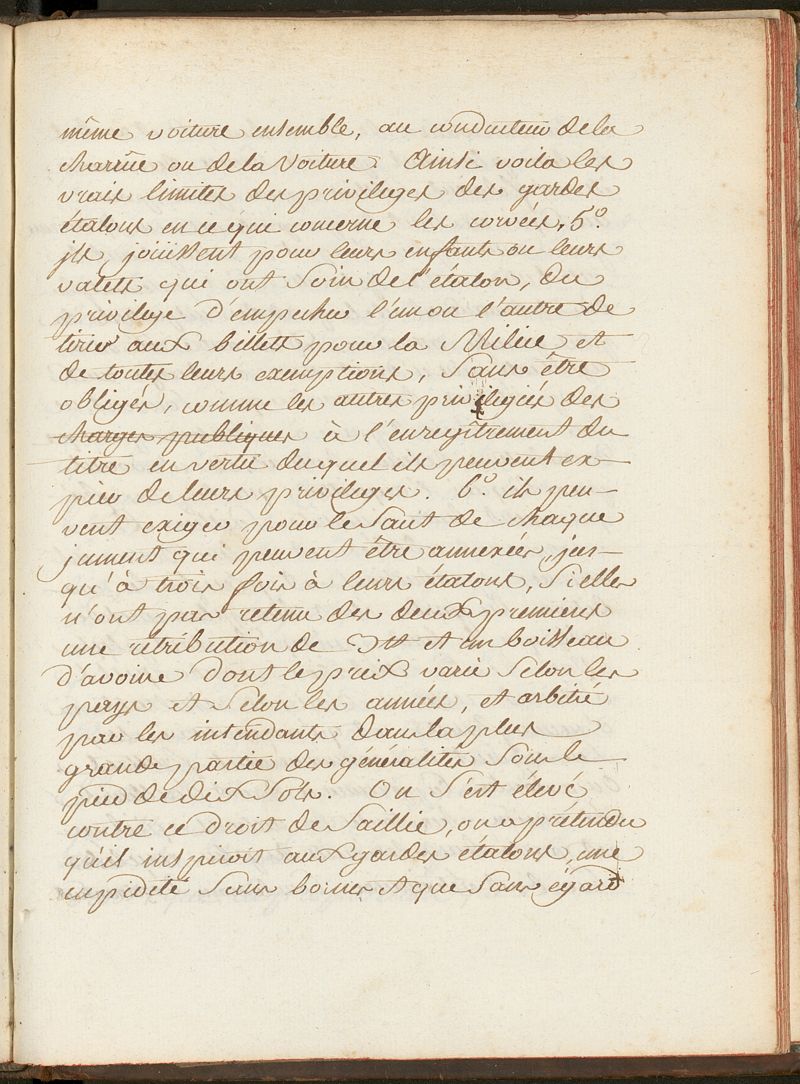 même voiture ensemble, au conducteur de la
charrüe ou de la Voiture. Ainsi voila les
vrais limites des privileges des gardes
étalons en ce qui concerne les corvées. 5.º
ils joüissent pour leurs enfants ou leurs
valets qui ont soin de l'étalon, du
privilege d'empecher l'un ou l'autre de
tirer aux billets pour la Milice et
de toutes leurs exemptions, sans être
obligés, comme les autres priviligiés des
charges publiques à l'enregîtrement du
titre en vertu duquel ils peuvent ex-
pier de leurs privileges. 6.º ils peu-
vent exiger pour le Saut de chaque
jument qui peuvent être annexées, jus-
qu'à trois fois à leurs étalons, si elles
n'ont pas retenu des deux premiers
une retribution de 3tt et un boisseau
d'avoine dont le prix varie selon les
pays et selon les années, et arbitré
par les intendants dans la plus
grande partie des généralités sur le
pied de dix sols. On s'est élevé
contre ce droit de Saillie, on a prétendu
qu'il inspiroit aux gardes étalons, une
cupidité sans bornes et que sans égard